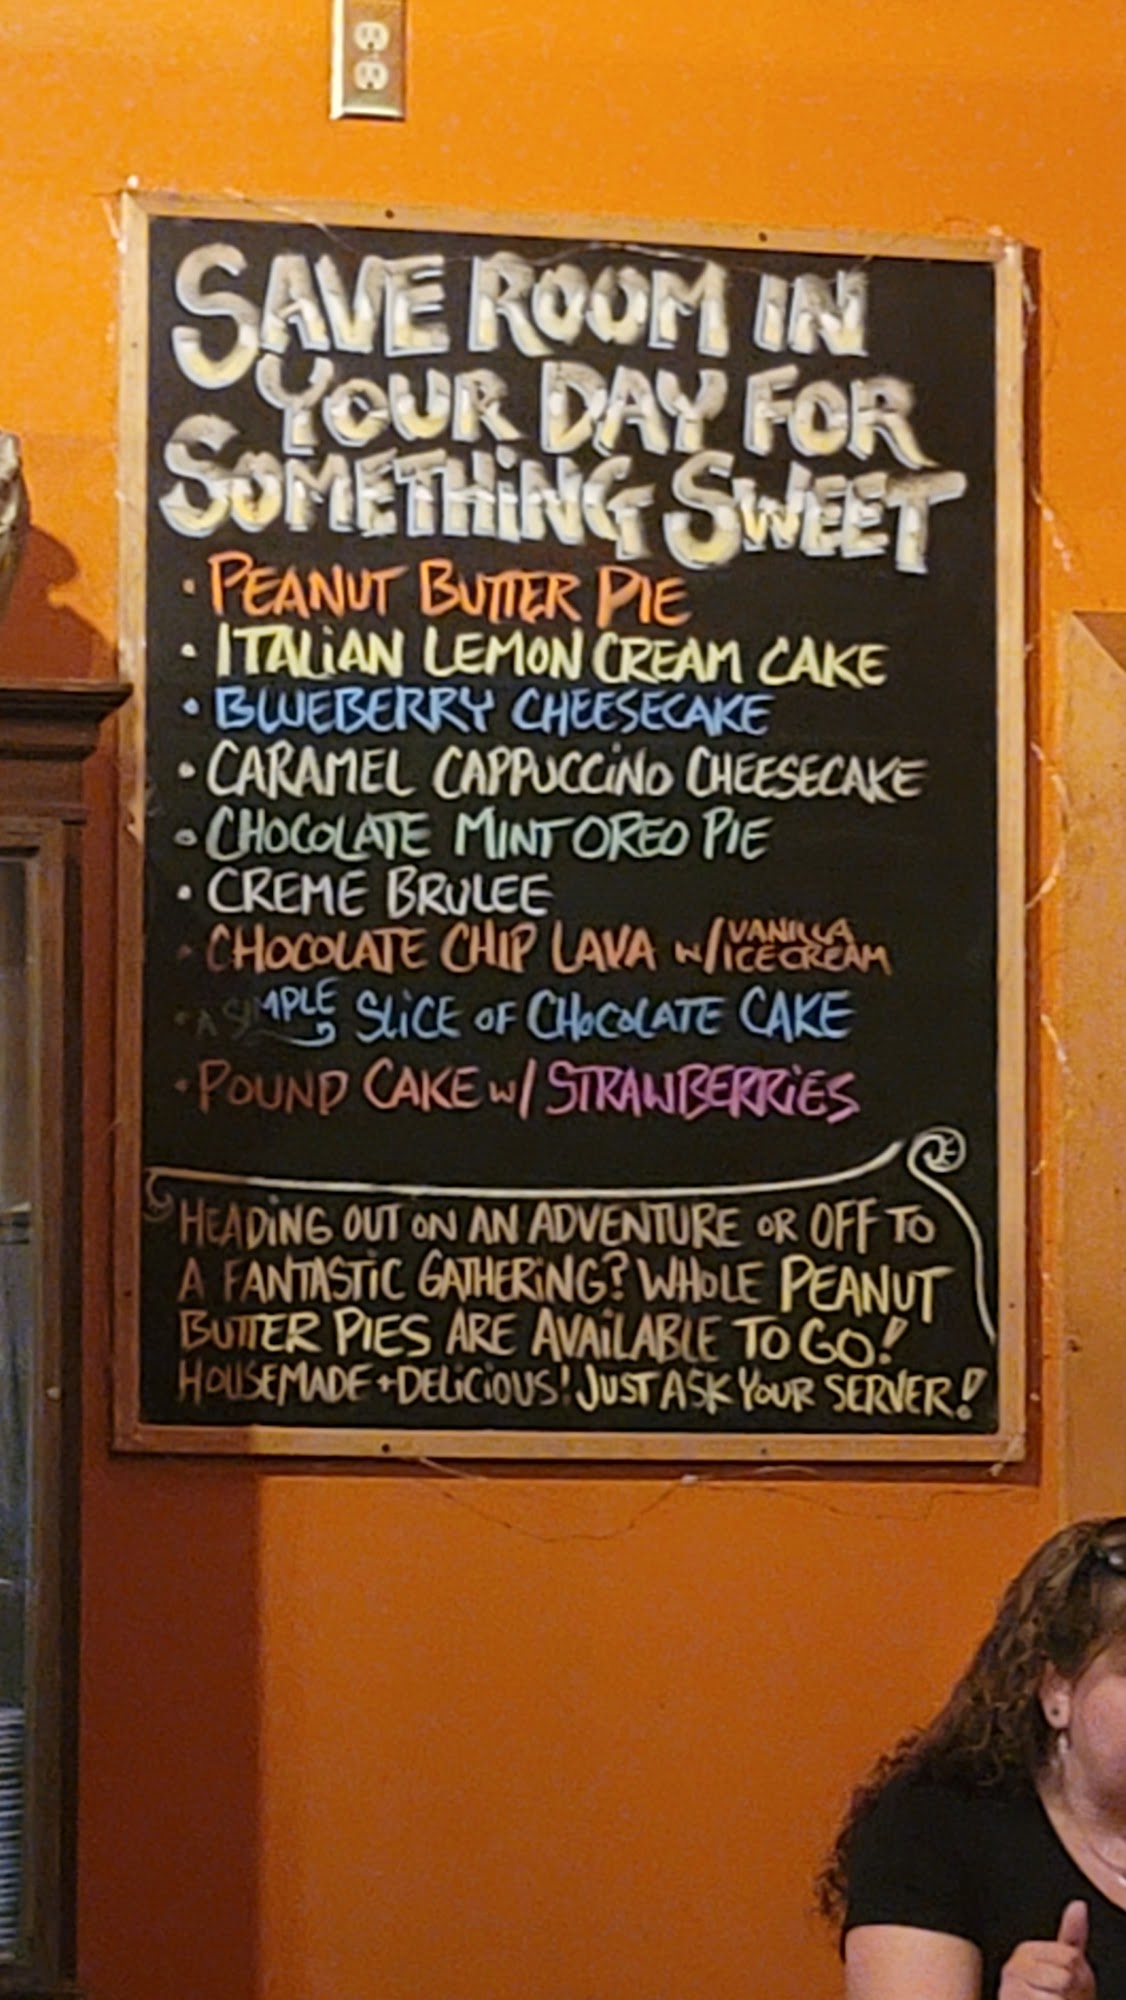 SAVE ROOM IN
YOUR DAY FOR
SOMETHING SWEET
• PEANUT BUTTER PIE
• ITALIAN LEMON CREAM CAKE
• BLUEBERRY CHEESECAKE
• CARAMEL CAPPUCCINO CHEESECAKE
• CHOCOLATE MINT OREO PIE
• CREME BRULEE
• CHOCOLATE CHIP LAVA W/ VANILLA ICE CREAM
• A SIMPLE SLICE OF CHOCOLATE CAKE
• POUND CAKE W/ STRAWBERRIES
HEADING OUT ON AN ADVENTURE OR OFF TO
A FANTASTIC GATHERING? WHOLE PEANUT
BUTTER PIES ARE AVAILABLE TO GO!
HOUSEMADE + DELICIOUS! JUST ASK YOUR SERVER!